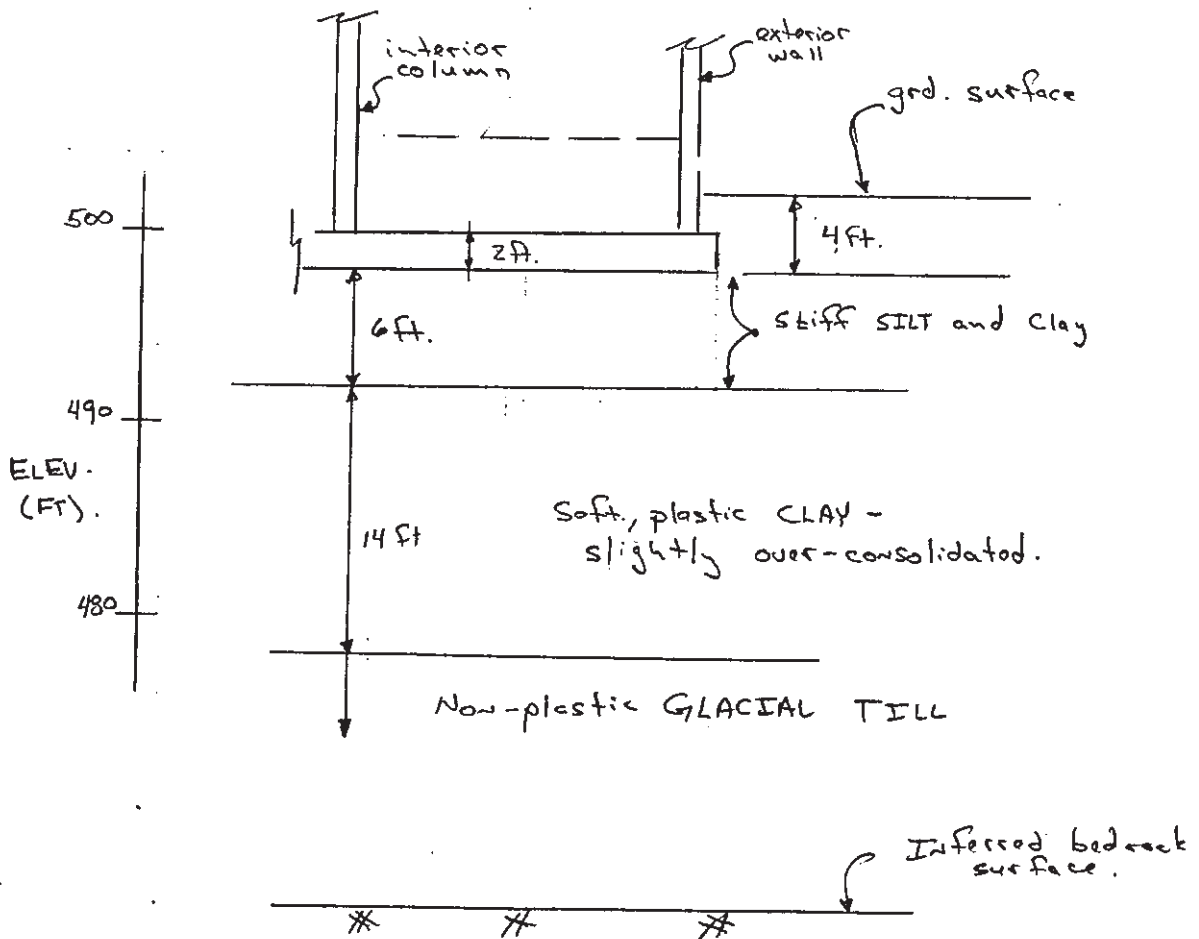 interior
column
exterior
wall
grd. surface
500
2 ft.
4 ft.
6 ft.
stiff SILT and Clay
490
ELEV.
(FT).
14 ft
Soft, plastic CLAY -
slightly over-consolidated.
480
Non-plastic GLACIAL TILL
Inferred bedrock
surface.